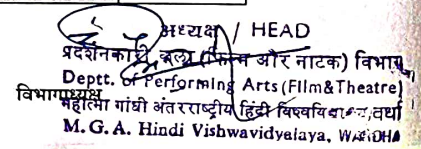 अध्यक्ष / HEAD
प्रदर्शनकारी कला (फिल्म और नाटक) विभाग
Deptt. of Performing Arts (Film & Theatre)
विभागाध्यक्ष
महात्मा गांधी अंतरराष्ट्रीय हिंदी विश्वविद्यालय, वर्धा
M. G. A. Hindi Vishwavidyalaya, WARDHA